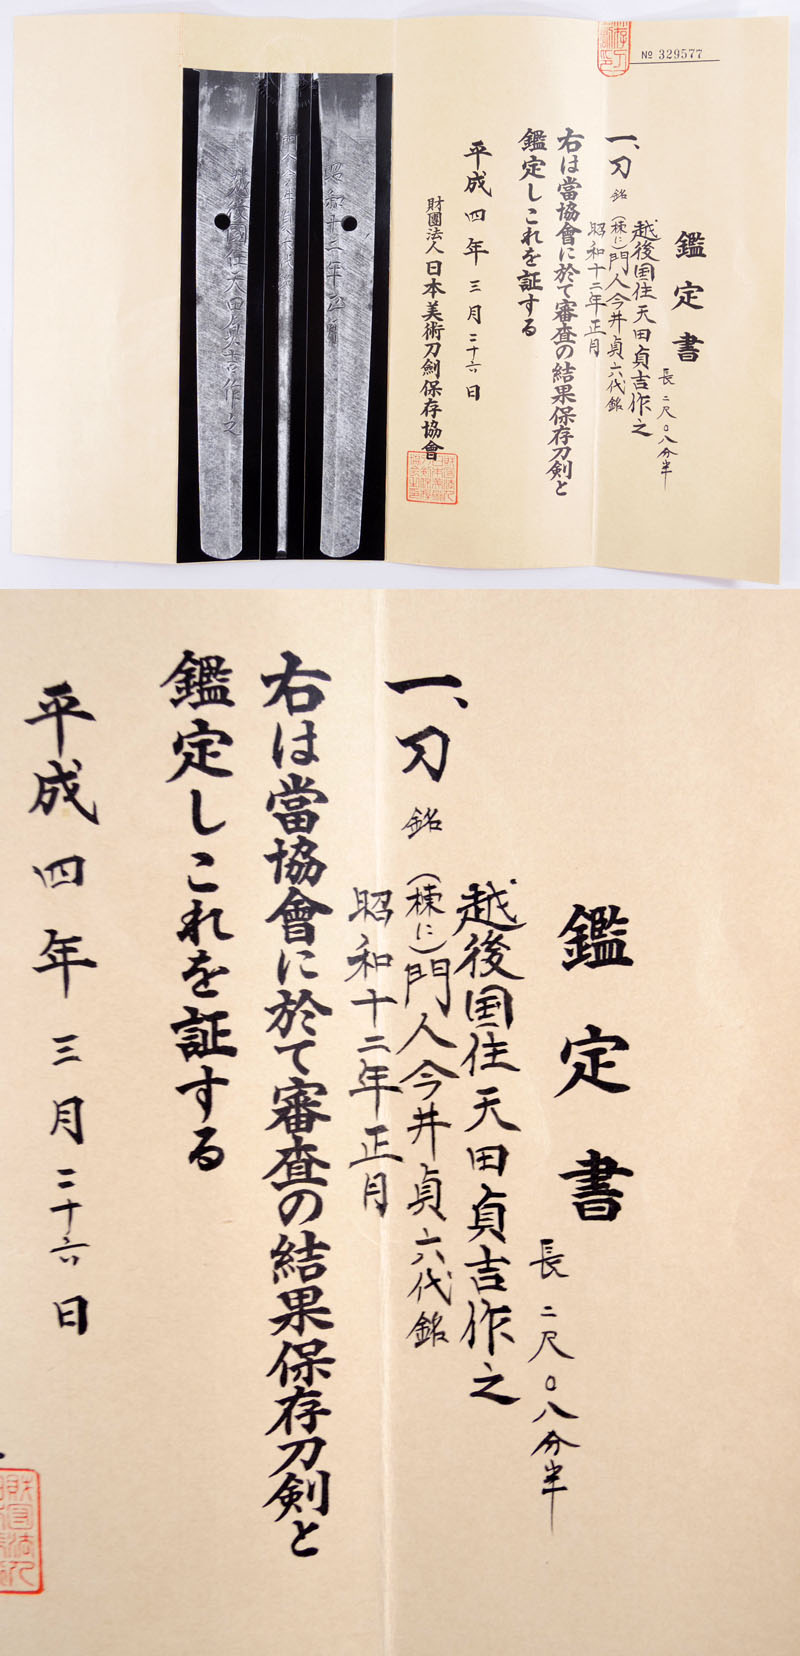 № 329577
鑑定書
長二尺〇八分半
一、刀 銘 越後国住天田貞吉作之
(棟に)門人今井貞六代銘
昭和十二年正月
右は當協會に於て審査の結果保存刀剣と
鑑定しこれを証する
平成四年三月二十六日
財團法人日本美術刀劍保存協會
昭和十二年正月
門人今井貞六代銘
越後國住天田貞吉作之
鑑定書
長二尺〇八分半
一、刀 銘 越後国住天田貞吉作之
(棟に)門人今井貞六代銘
昭和十二年正月
右は當協會に於て審査の結果保存刀剣と
鑑定しこれを証する
平成四年三月二十六日